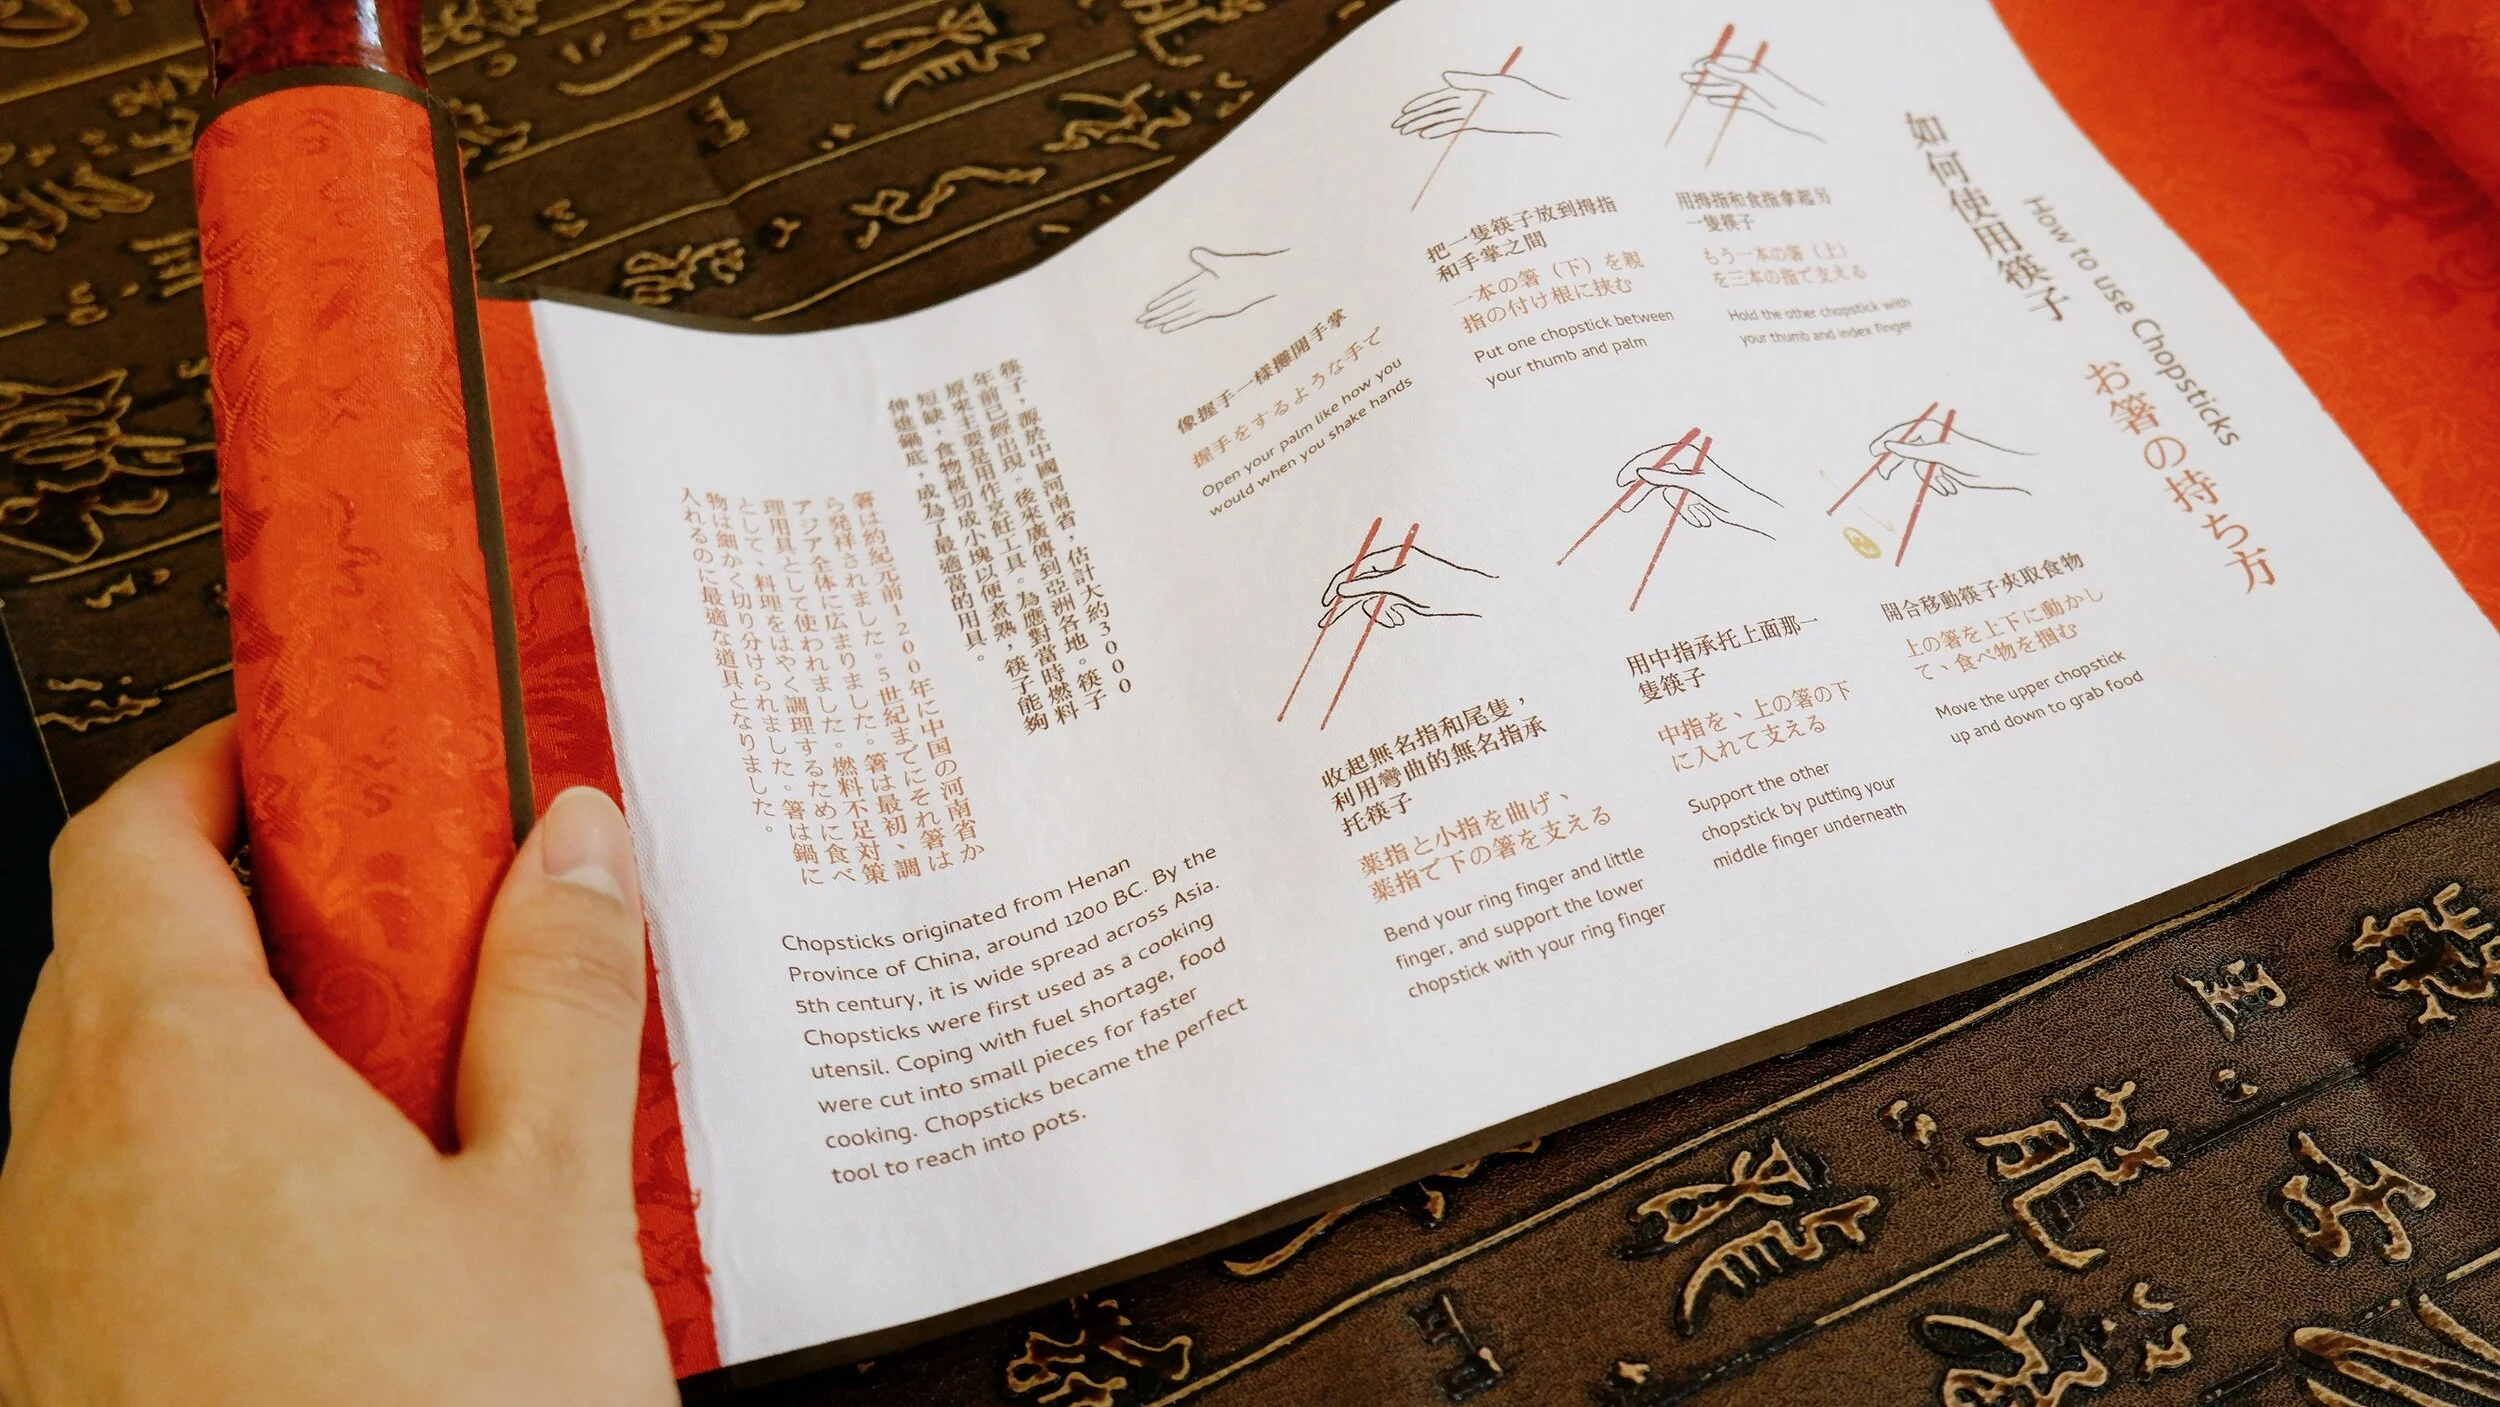 如何使用筷子
How to use Chopsticks
お箸の持ち方
像握手一樣攤開手掌
握手をするような手で
Open your palm like how you
would when you shake hands
把一隻筷子放到拇指
和手掌之間
一本の箸（下）を親
指の付け根に挟む
Put one chopstick between
your thumb and palm
用拇指和食指拿起另
一隻筷子
もう一本の箸（上）
を三本の指で支える
Hold the other chopstick with
your thumb and index finger
收起無名指和尾隻，
利用彎曲的無名指承
托筷子
薬指と小指を曲げ、
薬指で下の箸を支える
Bend your ring finger and little
finger, and support the lower
chopstick with your ring finger
用中指承托上面那一
隻筷子
中指を、上の箸の下
に入れて支える
Support the other
chopstick by putting your
middle finger underneath
開合移動筷子夾取食物
上の箸を上下に動かし
て、食べ物を掴む
Move the upper chopstick
up and down to grab food
筷子，源於中國河南省，估計大約3000
年前已經出現。後來廣傳到亞洲各地。筷子
原來主要是用作烹飪工具。為應對當時燃料
短缺，食物被切成小塊以便煮熟，筷子能夠
伸進鍋底，成為了最適當的用具。
箸は約紀元前1200年に中国の河南省か
ら発祥されました。5世紀までにそれ箸は
アジア全体に広まりました。箸は最初、調
理用具として使われました。燃料不足対策
として、料理をはやく調理するために食べ
物は細かく切り分けられました。箸は鍋に
入れるのに最適な道具となりました。
Chopsticks originated from Henan
Province of China, around 1200 BC. By the
5th century, it is wide spread across Asia.
Chopsticks were first used as a cooking
utensil. Coping with fuel shortage, food
were cut into small pieces for faster
cooking. Chopsticks became the perfect
tool to reach into pots.